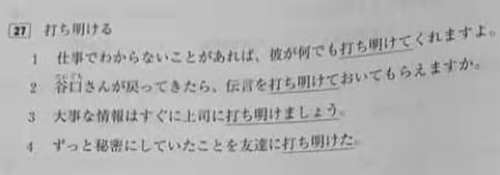 27 打ち明ける
1 仕事でわからないことがあれば、彼が何でも打ち明けてくれますよ。
2 谷口さんが戻ってきたら、伝言を打ち明けておいてもらえますか。
3 大事な情報はすぐに上司に打ち明けましょう。
4 ずっと秘密にしていたことを友達に打ち明けた。